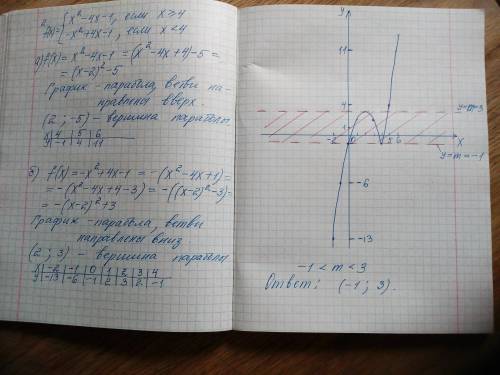 2. f(x)={ x²-4x-1, если x≥4
-x²+4x-1, если x<4
а) f(x)=x²-4x-1=(x²-4x+4)-5=
=(x-2)²-5
График - парабола, ветви на-
правлены вверх.
(2; -5) - вершина параболы
x 4 5 6
y -1 4 11
б) f(x)=-x²+4x-1=-(x²-4x+1)=
=-(x²-4x+4-3)=-((x-2)²-3)=
=-(x-2)²+3
График - парабола, ветви
направлены вниз
(2; 3) - вершина параболы
x -2 -1 0 1 2 3 4
y -13 -6 -1 2 3 2 -1
y
11
4
y=m=3
-2 0 5 6 x
y=m=-1
-6
-13
-1 < m < 3
Ответ: (-1; 3).